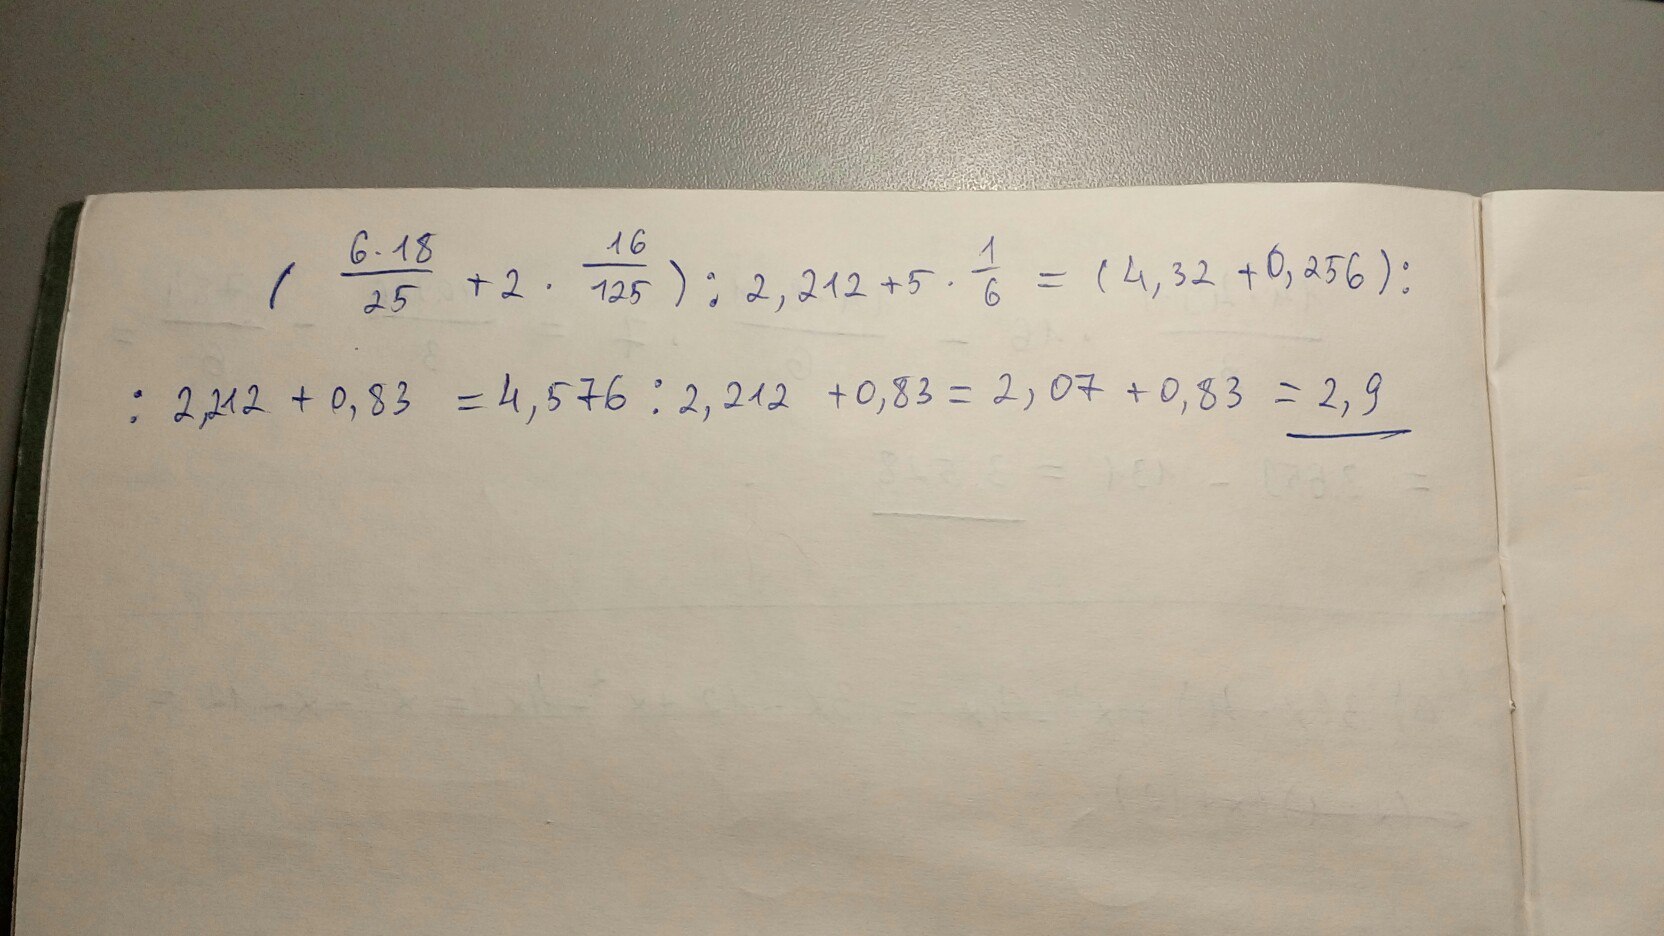 ( 6·18/25 + 2 · 16/125 ) : 2,212 + 5 · 1/6 = (4,32 + 0,256) :
: 2,212 + 0,83 = 4,576 : 2,212 + 0,83 = 2,07 + 0,83 = 2,9